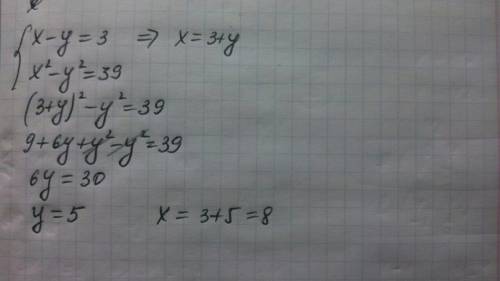 x-y=3 ⇒ x=3+y
x²-y²=39
(3+y)²-y²=39
9+6y+y²-y²=39
6y=30
y=5 x=3+5=8